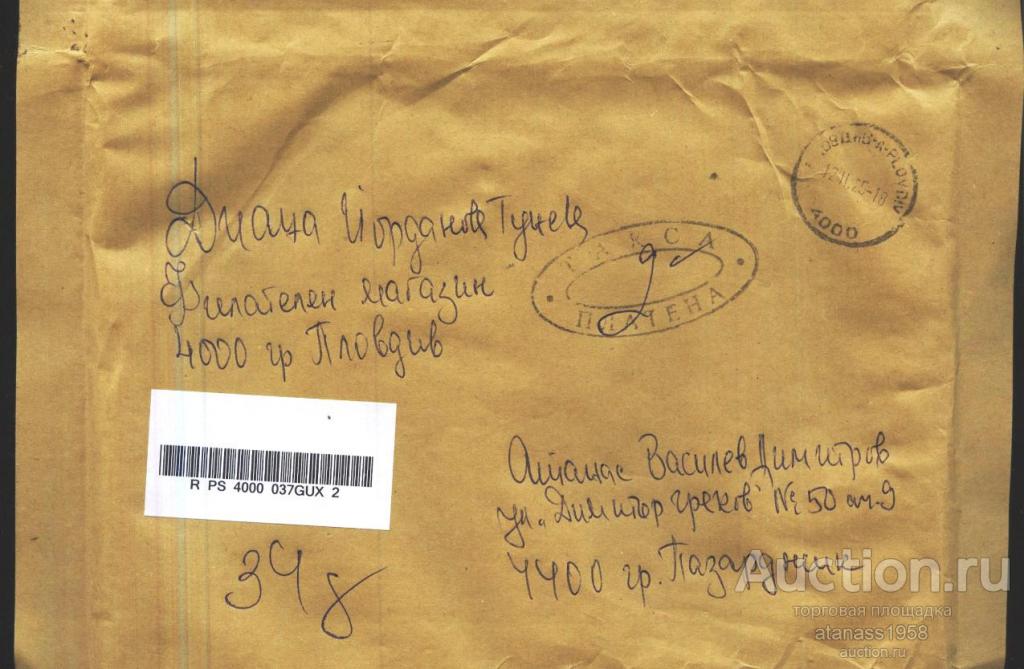 Диана Йорданова Тунева
Филателен магазин
4000 гр Пловдив
ТАКСА
ПЛАТЕНА
PLOVDIV
4000
R PS 4000 037GUX 2
Атанас Василев Димитров
ул. „Димитър Греков" № 50 ап. 9
4400 гр. Пазарджик
Auction.ru
торговая площадка
atanass1958
auction.ru